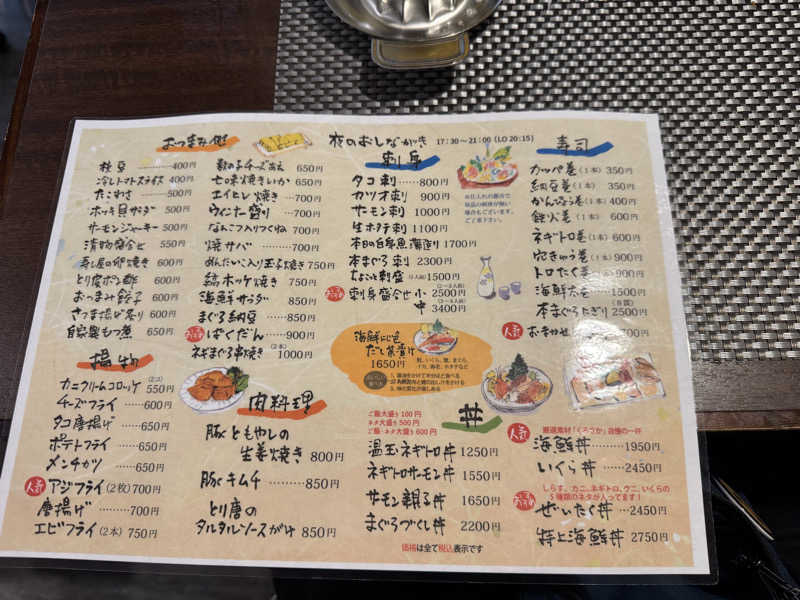 おつまみ他
枝豆 400円
冷しトマトスライス 400円
たこわさ 500円
ホッキ貝サラダ 500円
サーモンジャーキー 500円
漬物盛合せ 550円
寿し屋の卵焼き 600円
とり皮ポン酢 600円
おつまみ餃子 600円
さつま揚げ炙り 600円
自家製もつ煮 650円
数の子チーズあえ 650円
七味焼きいか 650円
エイヒレ焼き 700円
ウィンナー盛り 700円
なんこつ入りつくね 700円
焼サバ 700円
めんたいこ入り玉子焼き 750円
縞ホッケ焼き 750円
海鮮サラダ 850円
まぐろ納豆 850円
ばくだん 900円
ネギまぐろ串焼き(2本) 1000円
揚物
カニクリームコロッケ(2コ) 550円
チーズフライ 600円
タコ唐揚げ 650円
ポテトフライ 650円
メンチカツ 650円
人気 アジフライ(2枚) 700円
唐揚げ 700円
エビフライ(2本) 750円
肉料理
豚ともやしの
生姜焼き 800円
豚キムチ 850円
とり唐の
タルタルソースがけ 850円
夜のおしながき 17:30〜21:00(LO 20:15)
刺身
タコ刺 800円
カツオ刺 900円
サーモン刺 1000円
生ホテテ刺 1100円
本日の白身魚薄造り 1700円
本まぐろ刺 2300円
ちょこっと刺盛(1人前) 1500円
刺身盛合せ 小(2〜3人前) 2500円
中 3400円
※仕入れの都合で
海鮮ひと色
だし茶漬け
1650円
ご飯大盛り 100円
ネタ大盛り 500円
ご飯・ネタ大盛り 600円
丼
温玉ネギトロ丼 1250円
ネギトロサーモン丼 1550円
サーモン親子丼 1650円
まぐろづくし丼 2200円
人気 厳選素材!「くろうか」自慢の一杯
海鮮丼 1950円
いくら丼 2450円
しらす、カニ、ネギトロ、ウニ、いくらの
5種類のネタが入ってます!
ぜいたく丼 2450円
特上海鮮丼 2750円
寿司
カッパ巻(1本) 350円
納豆巻(1本) 350円
かんぴょう巻(1本) 400円
鉄火巻(1本) 600円
ネギトロ巻(1本) 600円
穴きゅう巻(1本) 900円
トロたく巻(1本) 900円
海鮮太巻 1500円
本まぐろにぎり(8貫) 2500円
人気 おまかせ
価格は全て税込表示です